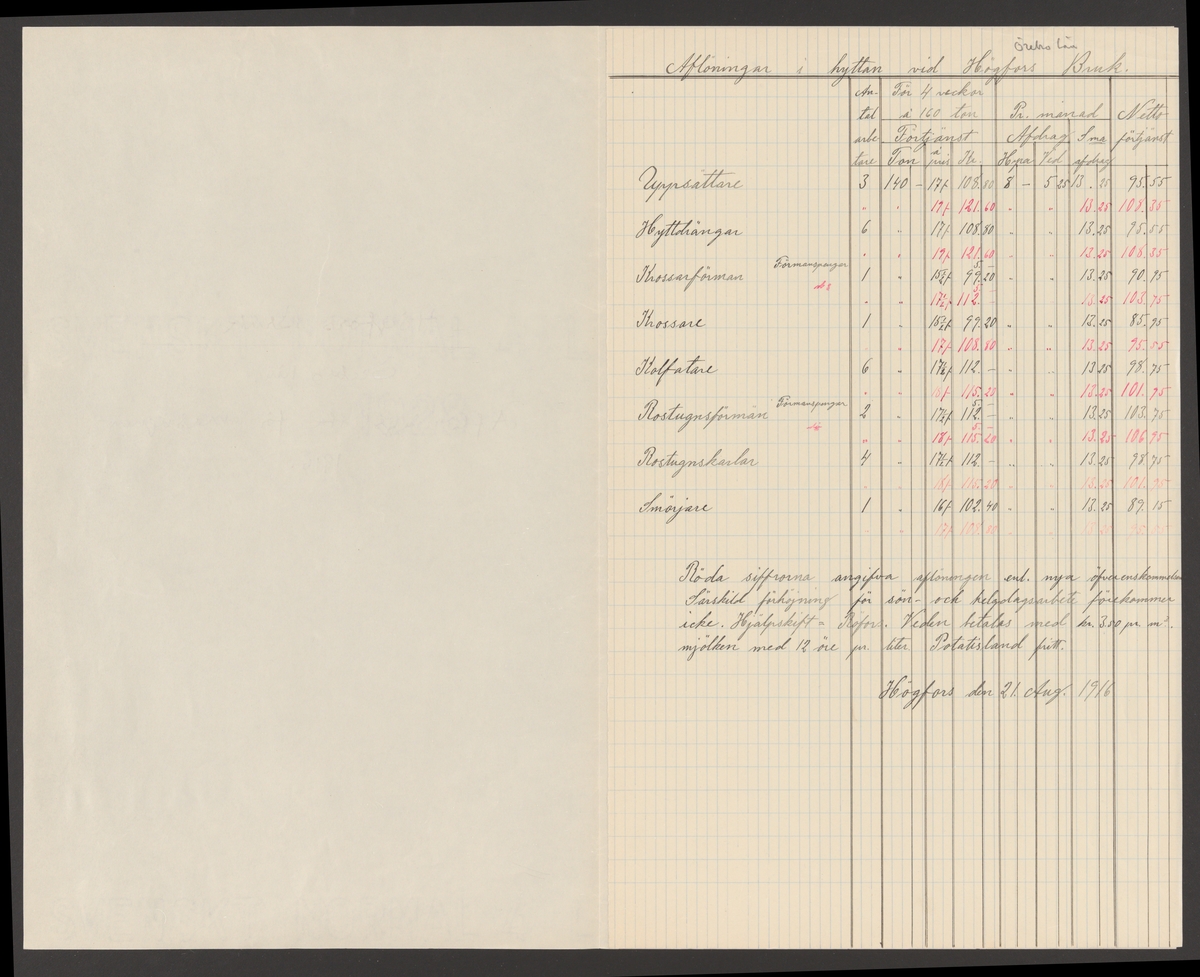 Örebro län
Aflöningar i hyttan vid Högfors Bruk.
An- För 4 veckor
tal à 160 ton Pr. månad Netto
arbe Förtjänst Afdrag S:ma förtjänst
tare Ton à pris Kr. Hyra Ved afdrag
Uppsättare 3 140 - 17/- 108.80 8 - 5 25 13.25 95.55
" " 19/- 121.60 " " 13.25 108.35
Hyttdrängar 6 " 17/- 108.80 " " 13.25 95.55
" " 19/- 121.60 " " 13.25 108.35
Förmanspengar 5.-
Krossarförman 1 " 15½/- 99.20 " " 13.25 90.95
5.-
" " 17½/- 112.- " " 13.25 103.75
Krossare 1 " 15½/- 99.20 " " 13.25 85.95
" 17/- 108.80 " " 13.25 95.55
Kolfatare 6 " 17½/- 112.- " " 13.25 98.75
" " 18/- 115.20 " " 13.25 101.95
Förmanspengar 5.-
Rostugnsförmän 2 " 17½/- 112.- " " 13.25 103.75
5.-
" " 18/- 115.20 " " 13.25 106.95
Rostugnskarlar 4 " 17½/- 112.- " " 13.25 98.75
" " 18/- 115.20 " " 13.25 101.95
Smörjare 1 " 16/- 102.40 " " 13.25 89.15
" 17/- 108.80 " " 13.25 95.55
Röda siffrorna angifva aflöningen enl. nya öfverenskommelsen
Särskild förhöjning för sön- och helgdagsarbete förekommer
icke. Hjälpskift = Veden betalas med kr. 3.50 pr. m³.
mjölken med 12 öre pr. liter. Potatisland fritt.
Högfors den 21. Aug. 1916